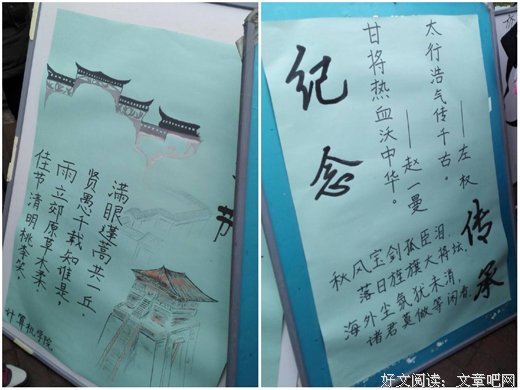 佳节清明桃李笑，
雨立郊原草木柔。
贤愚千载知谁是，
满眼蓬蒿共一丘。
节
计算机学院
纪念
太行浩气传千古。
——左权
甘将热血沃中华。
——赵一曼
秋风宝剑孤臣泪，
落日旌旗大将坛，
海外尘氛犹未消，
诸君莫做等闲看。
传承
好文阅读：文章吧网